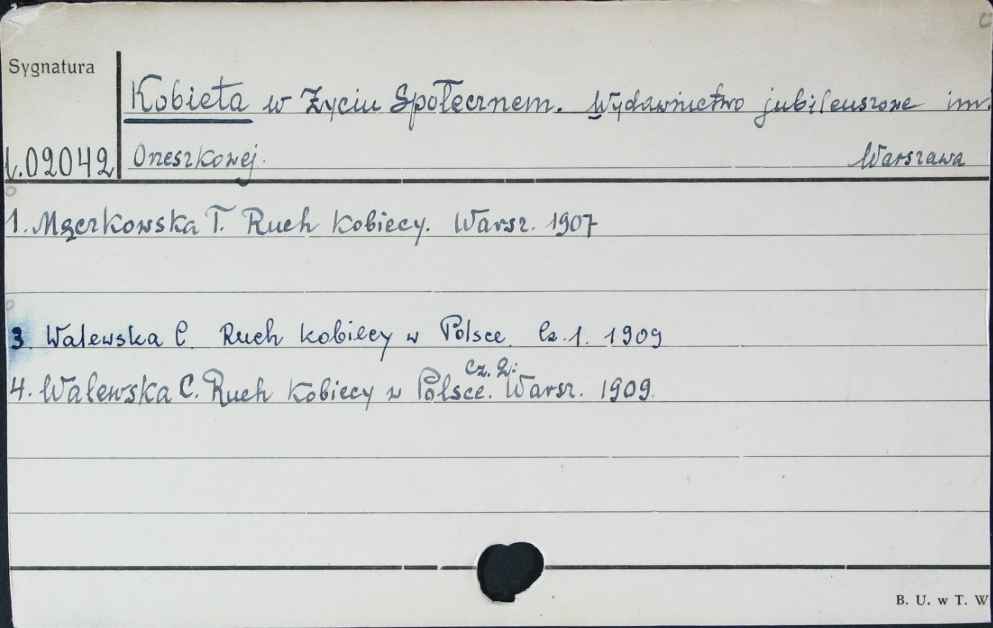 Sygnatura
Kobieta w Życiu Społecznem. Wydawnictwo jubileuszowe im.
02042 Orzeszkowej. Warszawa
1. Męczkowska T. Ruch kobiecy. Warsz. 1907
3. Walewska C. Ruch kobiecy w Polsce. Cz. 1. 1909
Cz. 2.
4. Walewska C. Ruch kobiecy w Polsce. Warsz. 1909.
B. U. w T. W